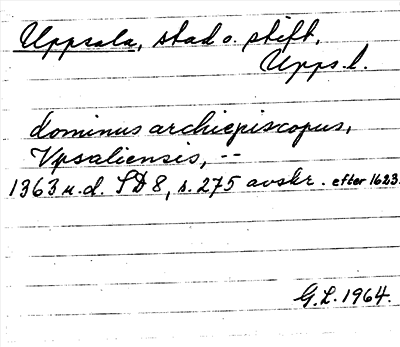 Uppsala, stad o. stift,
Upps. l.
dominus archiepiscopus,
Vpsaliensis, --
1363 u.d. SD 8, s. 275 avskr. efter 1623.
G.L. 1964.